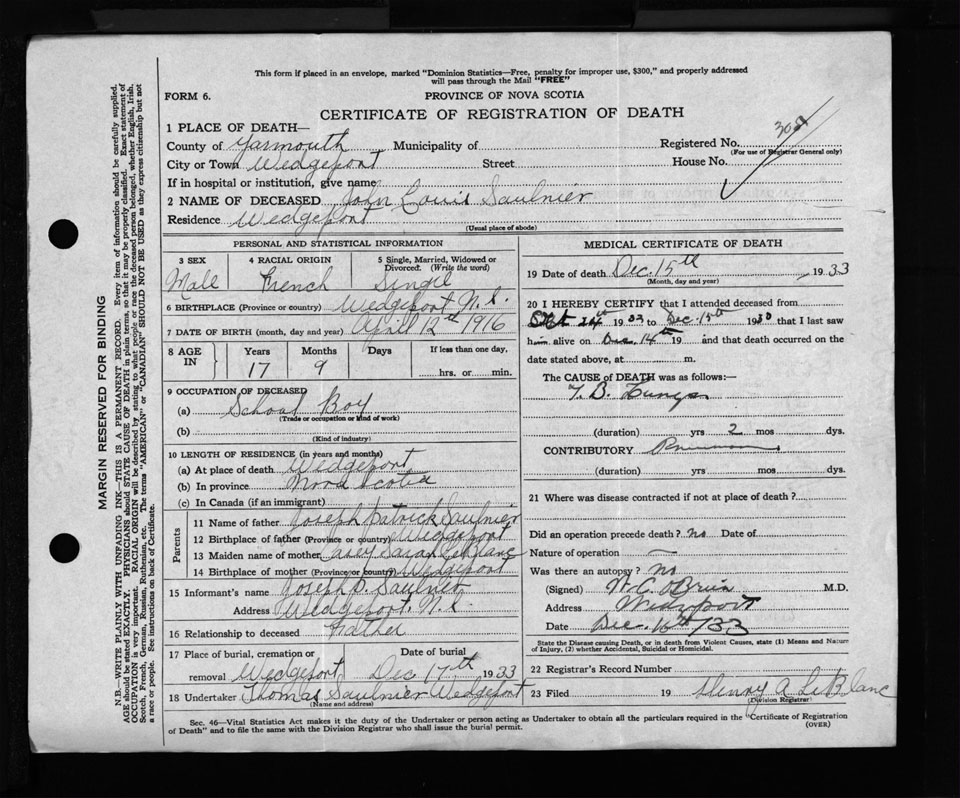 This form if placed in an envelope, marked "Dominion Statistics—Free, penalty for improper use, $300," and properly addressed
will pass through the Mail "FREE"
FORM 6.
PROVINCE OF NOVA SCOTIA
CERTIFICATE OF REGISTRATION OF DEATH
1 PLACE OF DEATH—
County of Yarmouth Municipality of Registered No.
(For use of Registrar General only)
City or Town Wedgeport Street House No.
If in hospital or institution, give name
2 NAME OF DECEASED John Louis Saulnier
Residence Wedgeport
(Usual place of abode)
PERSONAL AND STATISTICAL INFORMATION
3 SEX 4 RACIAL ORIGIN 5 Single, Married, Widowed or
Divorced. (Write the word)
Male French Single
6 BIRTHPLACE (Province or country) Wedgeport N.S.
7 DATE OF BIRTH (month, day and year) April 12th 1916
8 AGE IN Years Months Days If less than one day,
17 9 hrs. or min.
9 OCCUPATION OF DECEASED
(a) School Boy
(Trade or occupation or kind of work)
(b)
(Kind of industry)
10 LENGTH OF RESIDENCE (in years and months)
(a) At place of death Wedgeport
(b) In province Nova Scotia
(c) In Canada (if an immigrant)
Parents
11 Name of father Joseph Patrick Saulnier
12 Birthplace of father (Province or country) Wedgeport
13 Maiden name of mother Sarah LeBlanc
14 Birthplace of mother (Province or country) Wedgeport
15 Informant's name Joseph P. Saulnier
Address Wedgeport, N.S.
16 Relationship to deceased Father
17 Place of burial, cremation or Date of burial
removal Wedgeport Dec 17th 1933
18 Undertaker Thomas Saulnier Wedgeport
(Name and address)
MEDICAL CERTIFICATE OF DEATH
19 Date of death Dec. 15th 1933
(Month, day and year)
20 I HEREBY CERTIFY that I attended deceased from
24th 1933 to Dec. 15th 19 that I last saw
him alive on Dec. 14th 19 and that death occurred on the
date stated above, at m.
The CAUSE of DEATH was as follows:—
T. B. Lungs
(duration) yrs 2 mos dys.
CONTRIBUTORY
(duration) yrs mos dys.
21 Where was disease contracted if not at place of death?
Did an operation precede death? no Date of
Nature of operation —
Was there an autopsy? no
(Signed) W. C. O'Brien M.D.
Address Wedgeport
Date Dec. 16th/33
State the Disease causing Death, or in death from Violent Causes, state (1) Means and Nature
of Injury, (2) whether Accidental, Suicidal or Homicidal.
22 Registrar's Record Number
23 Filed 19 Henry A LeBlanc
(Division Registrar)
Sec. 46—Vital Statistics Act makes it the duty of the Undertaker or person acting as Undertaker to obtain all the particulars required in the "Certificate of Registration
of Death" and to file the same with the Division Registrar who shall issue the burial permit.
(OVER)
MARGIN RESERVED FOR BINDING
N.B.—WRITE PLAINLY WITH UNFADING INK—THIS IS A PERMANENT RECORD. Every item of information should be carefully supplied.
AGE should be stated EXACTLY. PHYSICIANS should STATE CAUSE OF DEATH in plain terms, so that it may be properly classified. Exact statement of
OCCUPATION is very important. RACIAL ORIGIN will be described by stating to what people or race the deceased person belonged, whether English, Irish,
Scotch, French, German, Russian, Ruthenian, etc. The terms "AMERICAN" or "CANADIAN" SHOULD NOT BE USED as they express citizenship but not
a race or people. See instructions on back of Certificate.